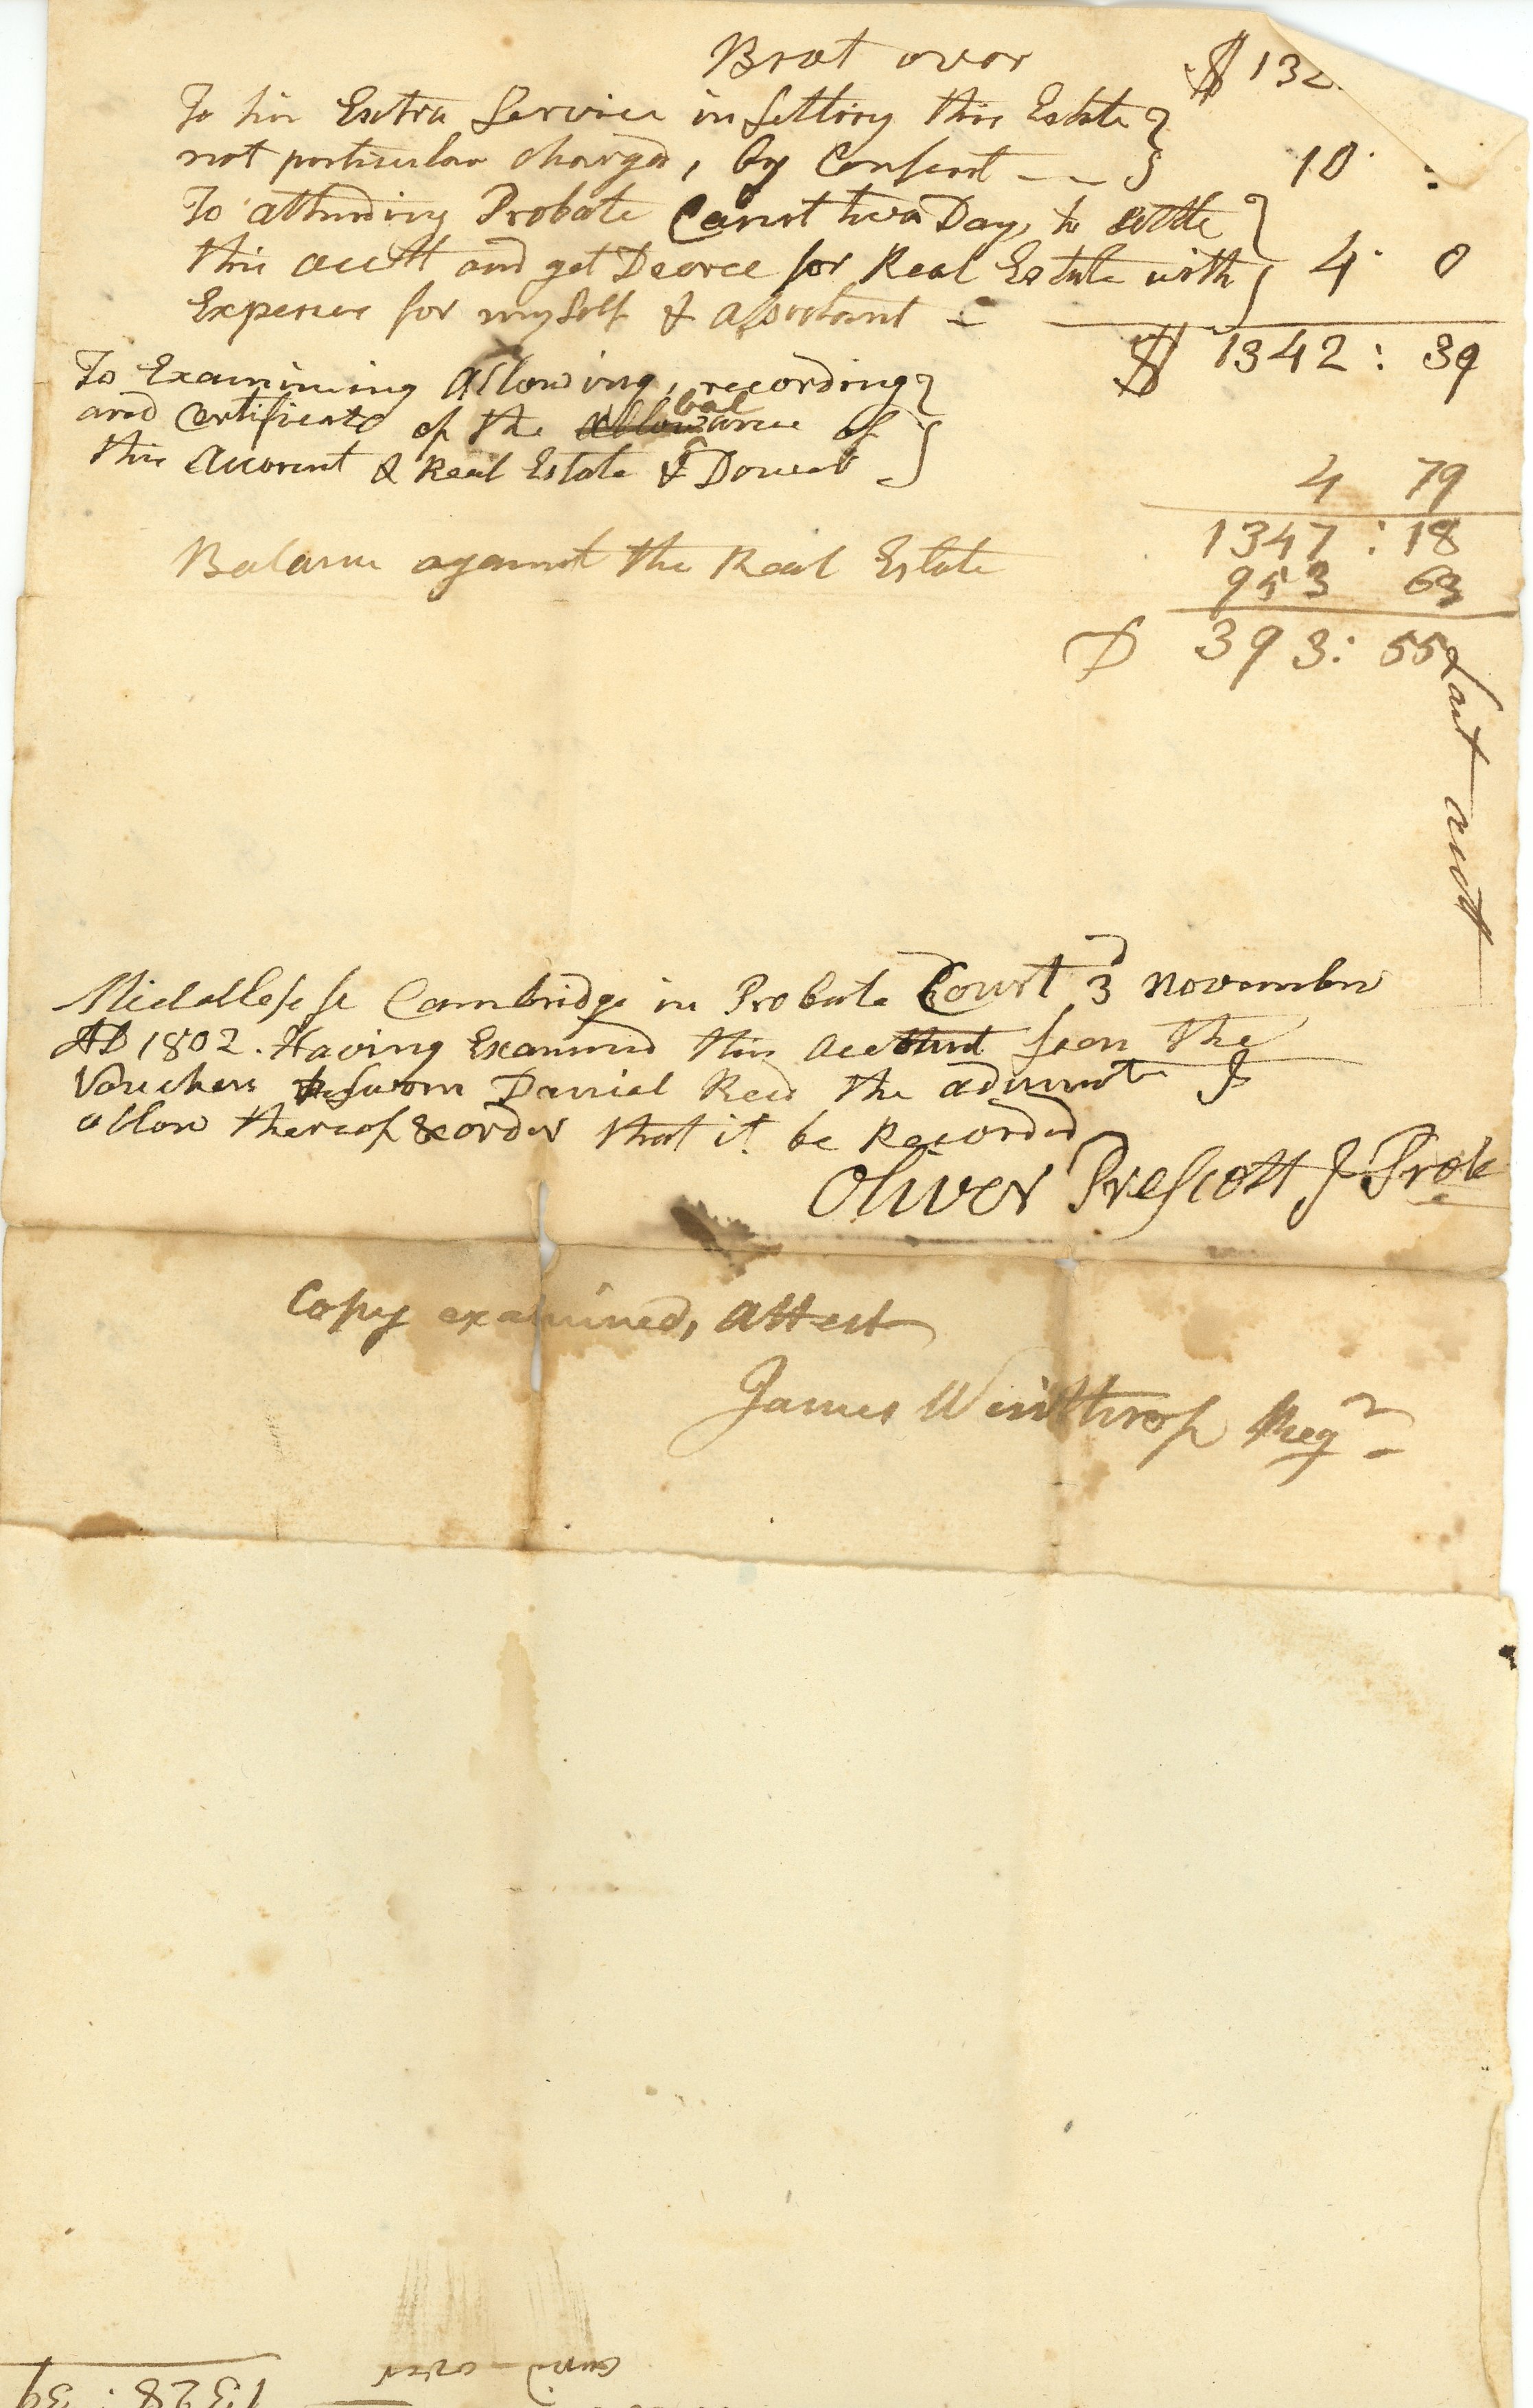 Brot over $ 132
To his Extra Service in Setting this Estate }
not particular charged, by Consent -- } 10 :
To attending Probate Court two Days to settle }
this acctt and get Decree for Real Estate with } 4 0
Expences for my Self & assistant -
$ 1342 : 39
To Examining Allowing, recording }
and Certificate of the allowance bal of }
this Account & Real Estate & Dower }
4 79
1347 : 18
Balance against the Real Estate 953 63
D 393 : 55
Last acctt
Middlesex ss Cambridge in Probate Court 3d November
AD 1802. Having Examined this account seen the
Vouchers & Sworn Daniel Reed the adminr I
allow thereof & order that it be Recorded
Oliver Prescott J Prob
Copy examined, Attest
James Winthrop Regr
card over
1328 : 39